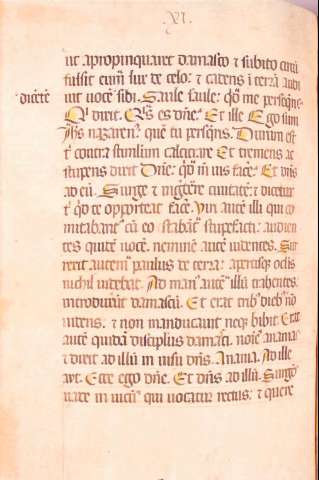 XI.
ut apropinquaret damasco et subito circu
fulsit eum lux de celo: et cadens i terra audi
dicete
uit uoce sibi. Saule saule: qd me perseqris.
Q dixit. Qis es dne: Et ille Ego sum
ihs nazaren que tu perseqris. Durum est
t contra stimulum calcitrare Et tremens ac
stupens dixit Dne: qd me uis face: Et dns
ad eu. Surge et ingredere ciuitate: et dicetur
t qd te opporteat face. Viri aute illi qui co
mitabant cu eo stabat stupefacti: audien
tes quide uoce. nemine aute uidentes. Sur
rexit autem paulus de terra: apertisque oclis
nichil uidebat. Ad man aute illu trahentes:
introduxerut damascu. Et erat trib dieb no
uidens. et non manducauit neq bibit. Erat
aute quida discipulus damasci. noie anania
et dixit ad illu in uisu dns. Anania. At ille
ayt. Ecce ego dne. Et dns ad illu. Surge
uade in uicu qui uocatur rectus: et quere